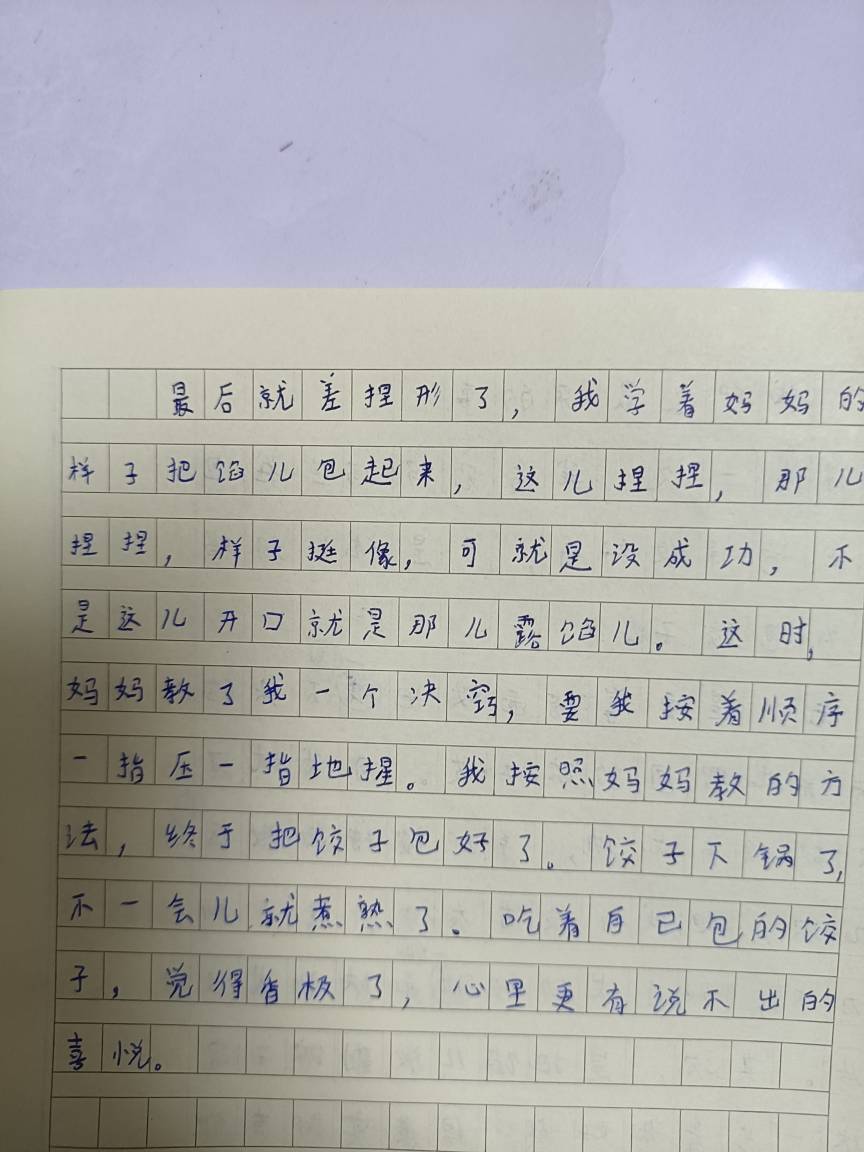 最后就差捏形了，我学着妈妈的
样子把馅儿包起来，这儿捏捏，那儿
捏捏，样子挺像，可就是没成功，不
是这儿开口就是那儿露馅儿。这时，
妈妈教了我一个决窍，要我按着顺序
一指压一指地捏。我按照妈妈教的方
法，终于把饺子包好了。饺子下锅了，
不一会儿就煮熟了。吃着自己包的饺
子，觉得香极了，心里更有说不出的
喜悦。